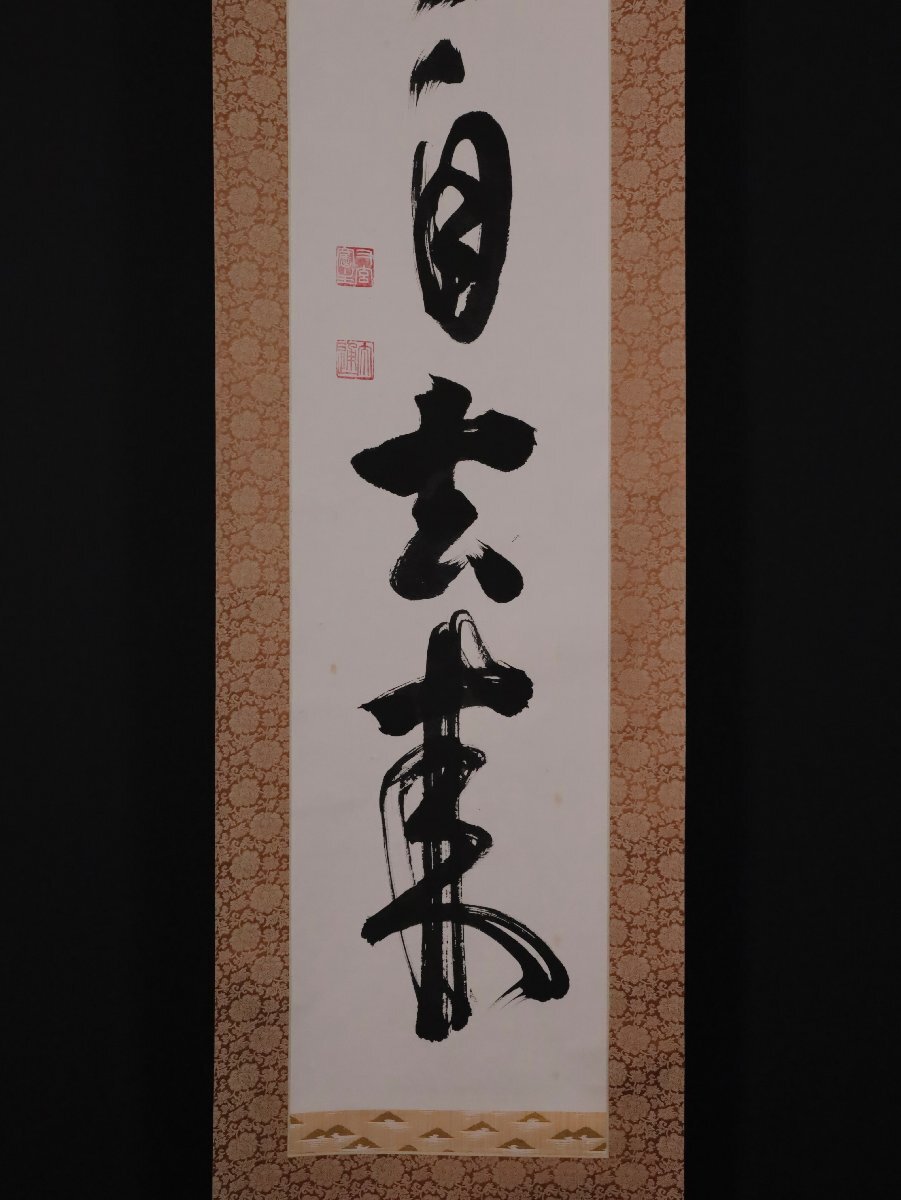 自去来